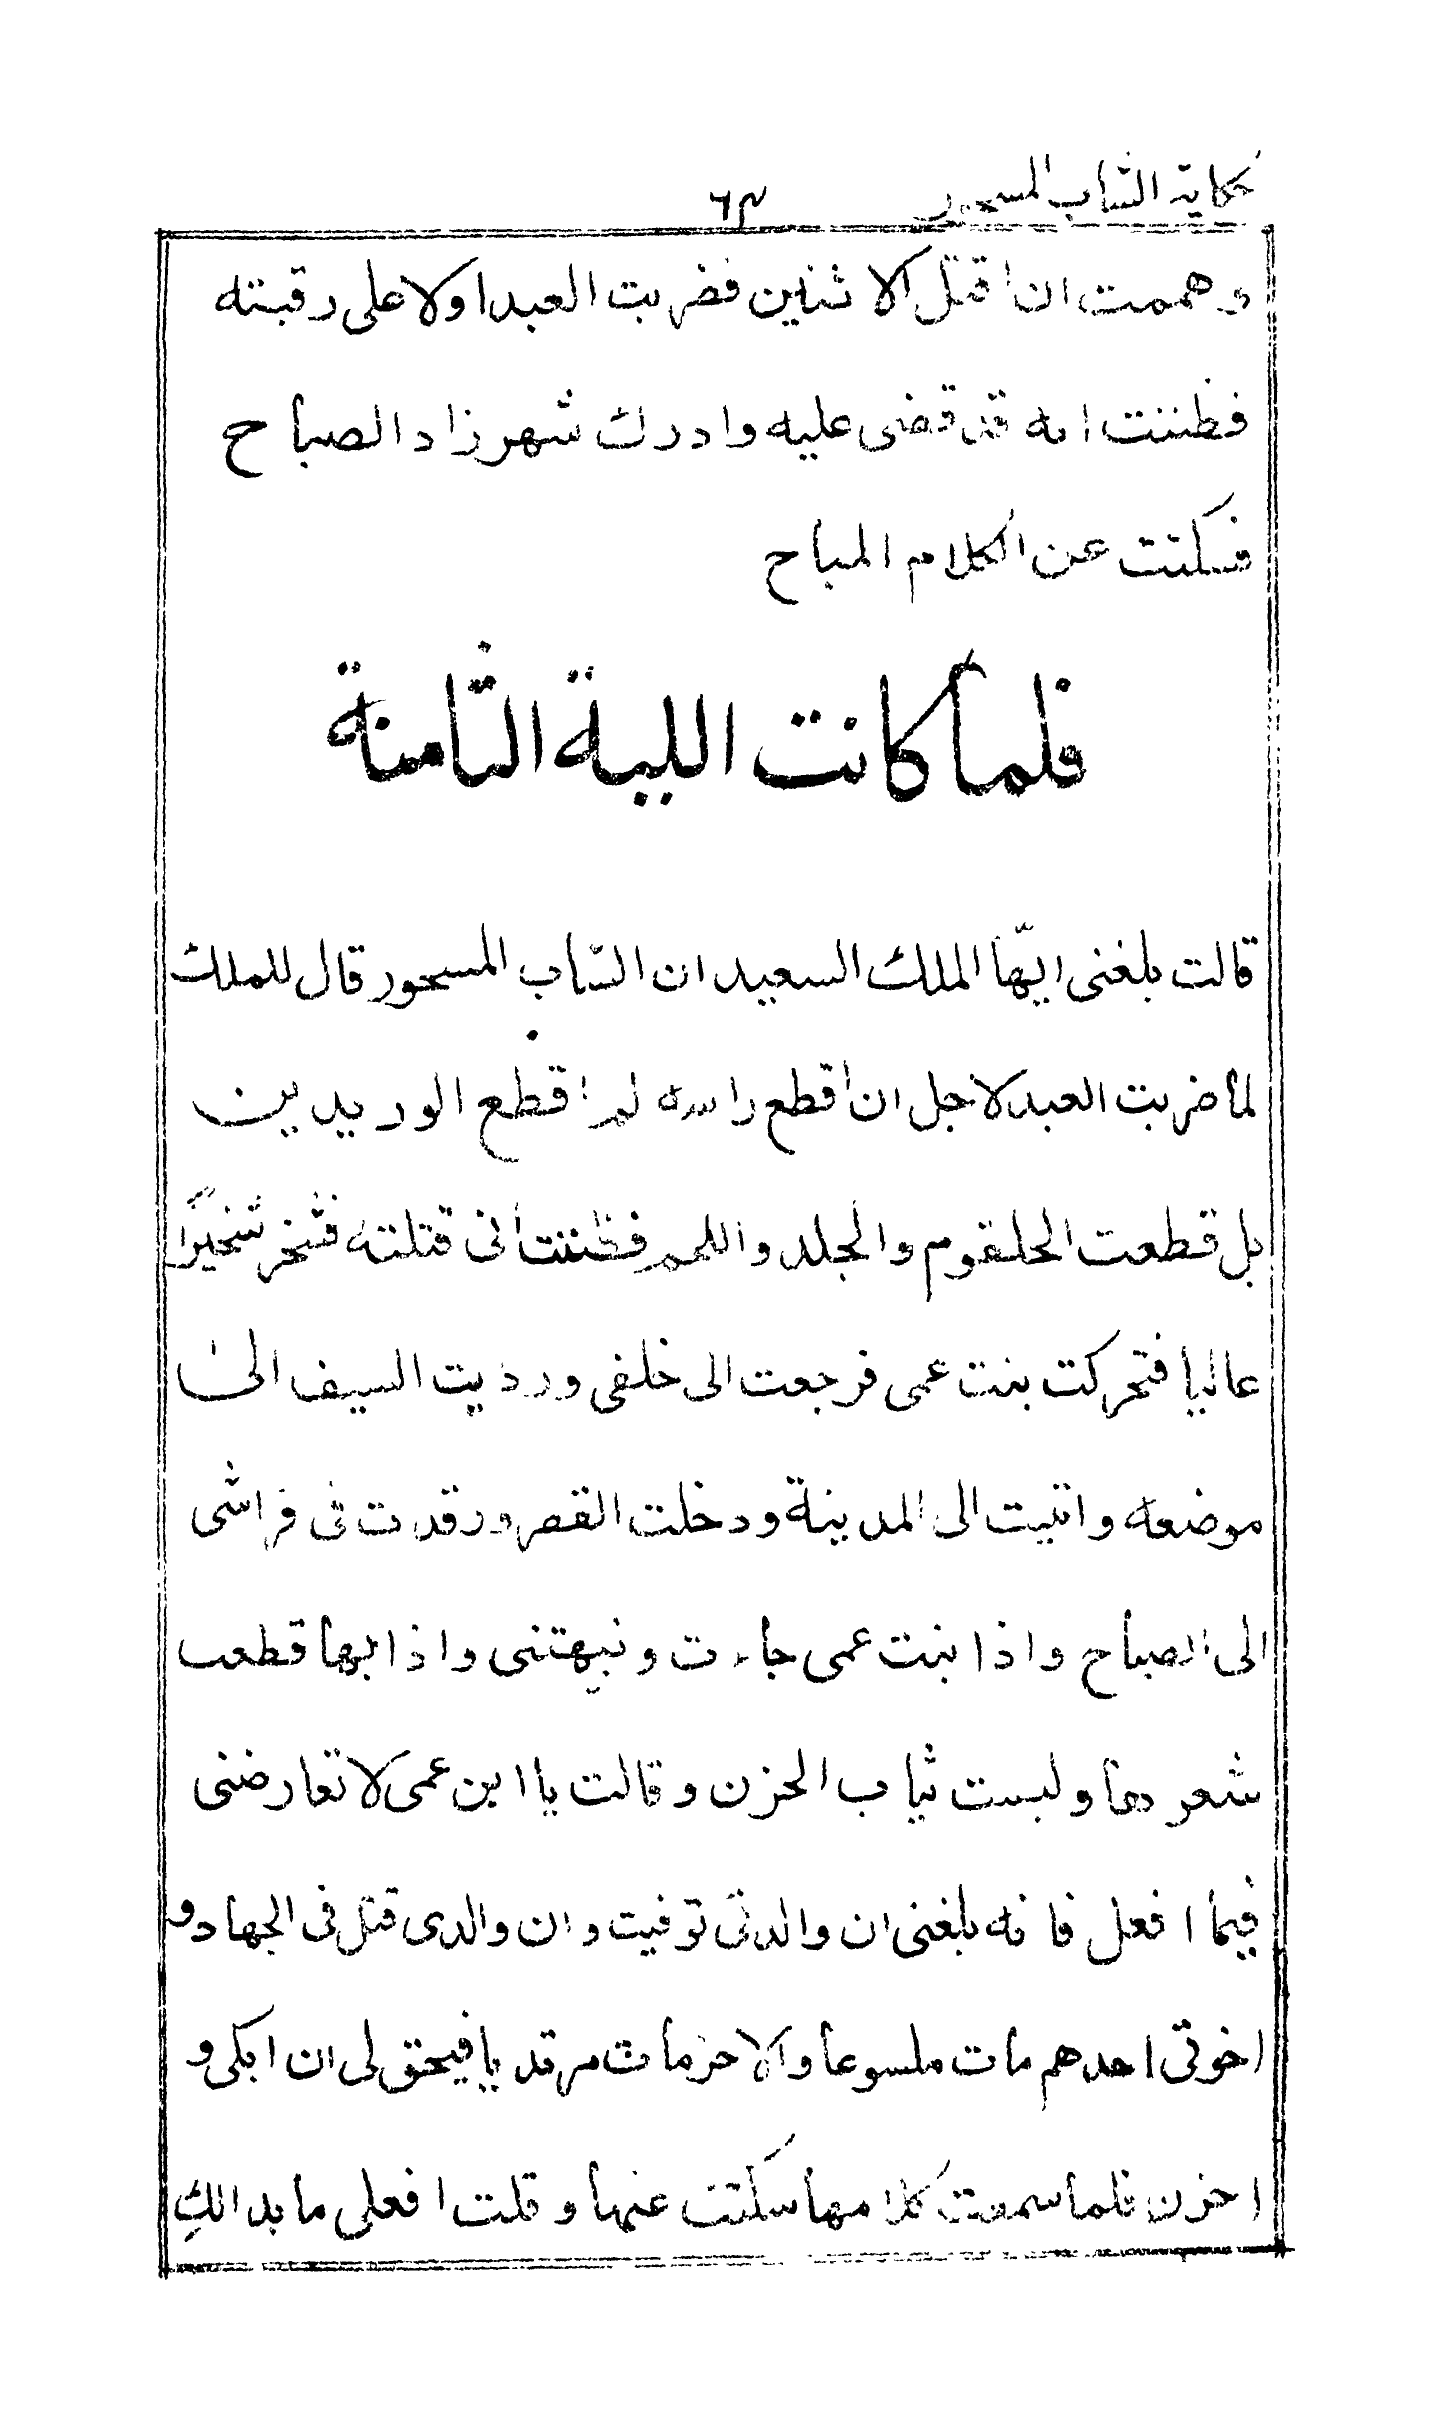 حكاية الشاب المسحور ٦٣
وهممت ان اقتل الاثنين فضربت العبد اولا على رقبته
فظننت انه قد قضى عليه وادرك شهرزاد الصباح
فسكتت عن الكلام المباح
فلما كانت الليلة الثامنة
قالت بلغنى ايّها الملك السعيد ان الشاب المسحور قال للملك
لما ضربت العبد لاجل ان اقطع راسه لم اقطع الوريدين
بل قطعت الحلقوم والجلد واللحم فظننت أنى قتلته فشخر شخيرًا
عاليا فتحركت بنت عمى فرجعت الى خلفى ورديت السيف الى
موضعه واتيت الى المدينة ودخلت القصر ورقدت فى فراشى
الى الصباح واذا بنت عمى جاءت ونبهتنى واذا بها قطعت
شعرها ولبست ثياب الحزن وقالت يا ابن عمى لا تعارضنى
فيما افعل فانه بلغنى ان والدتى توفيت وان والدى قتل فى الجهاد و
اخوتى احدهم مات ملسوعا والاخر مات مرتديا فيحق لى ان ابكى و
احزن فلما سمعت كلامها سكتت عنها وقلت افعلى ما بدالكِ